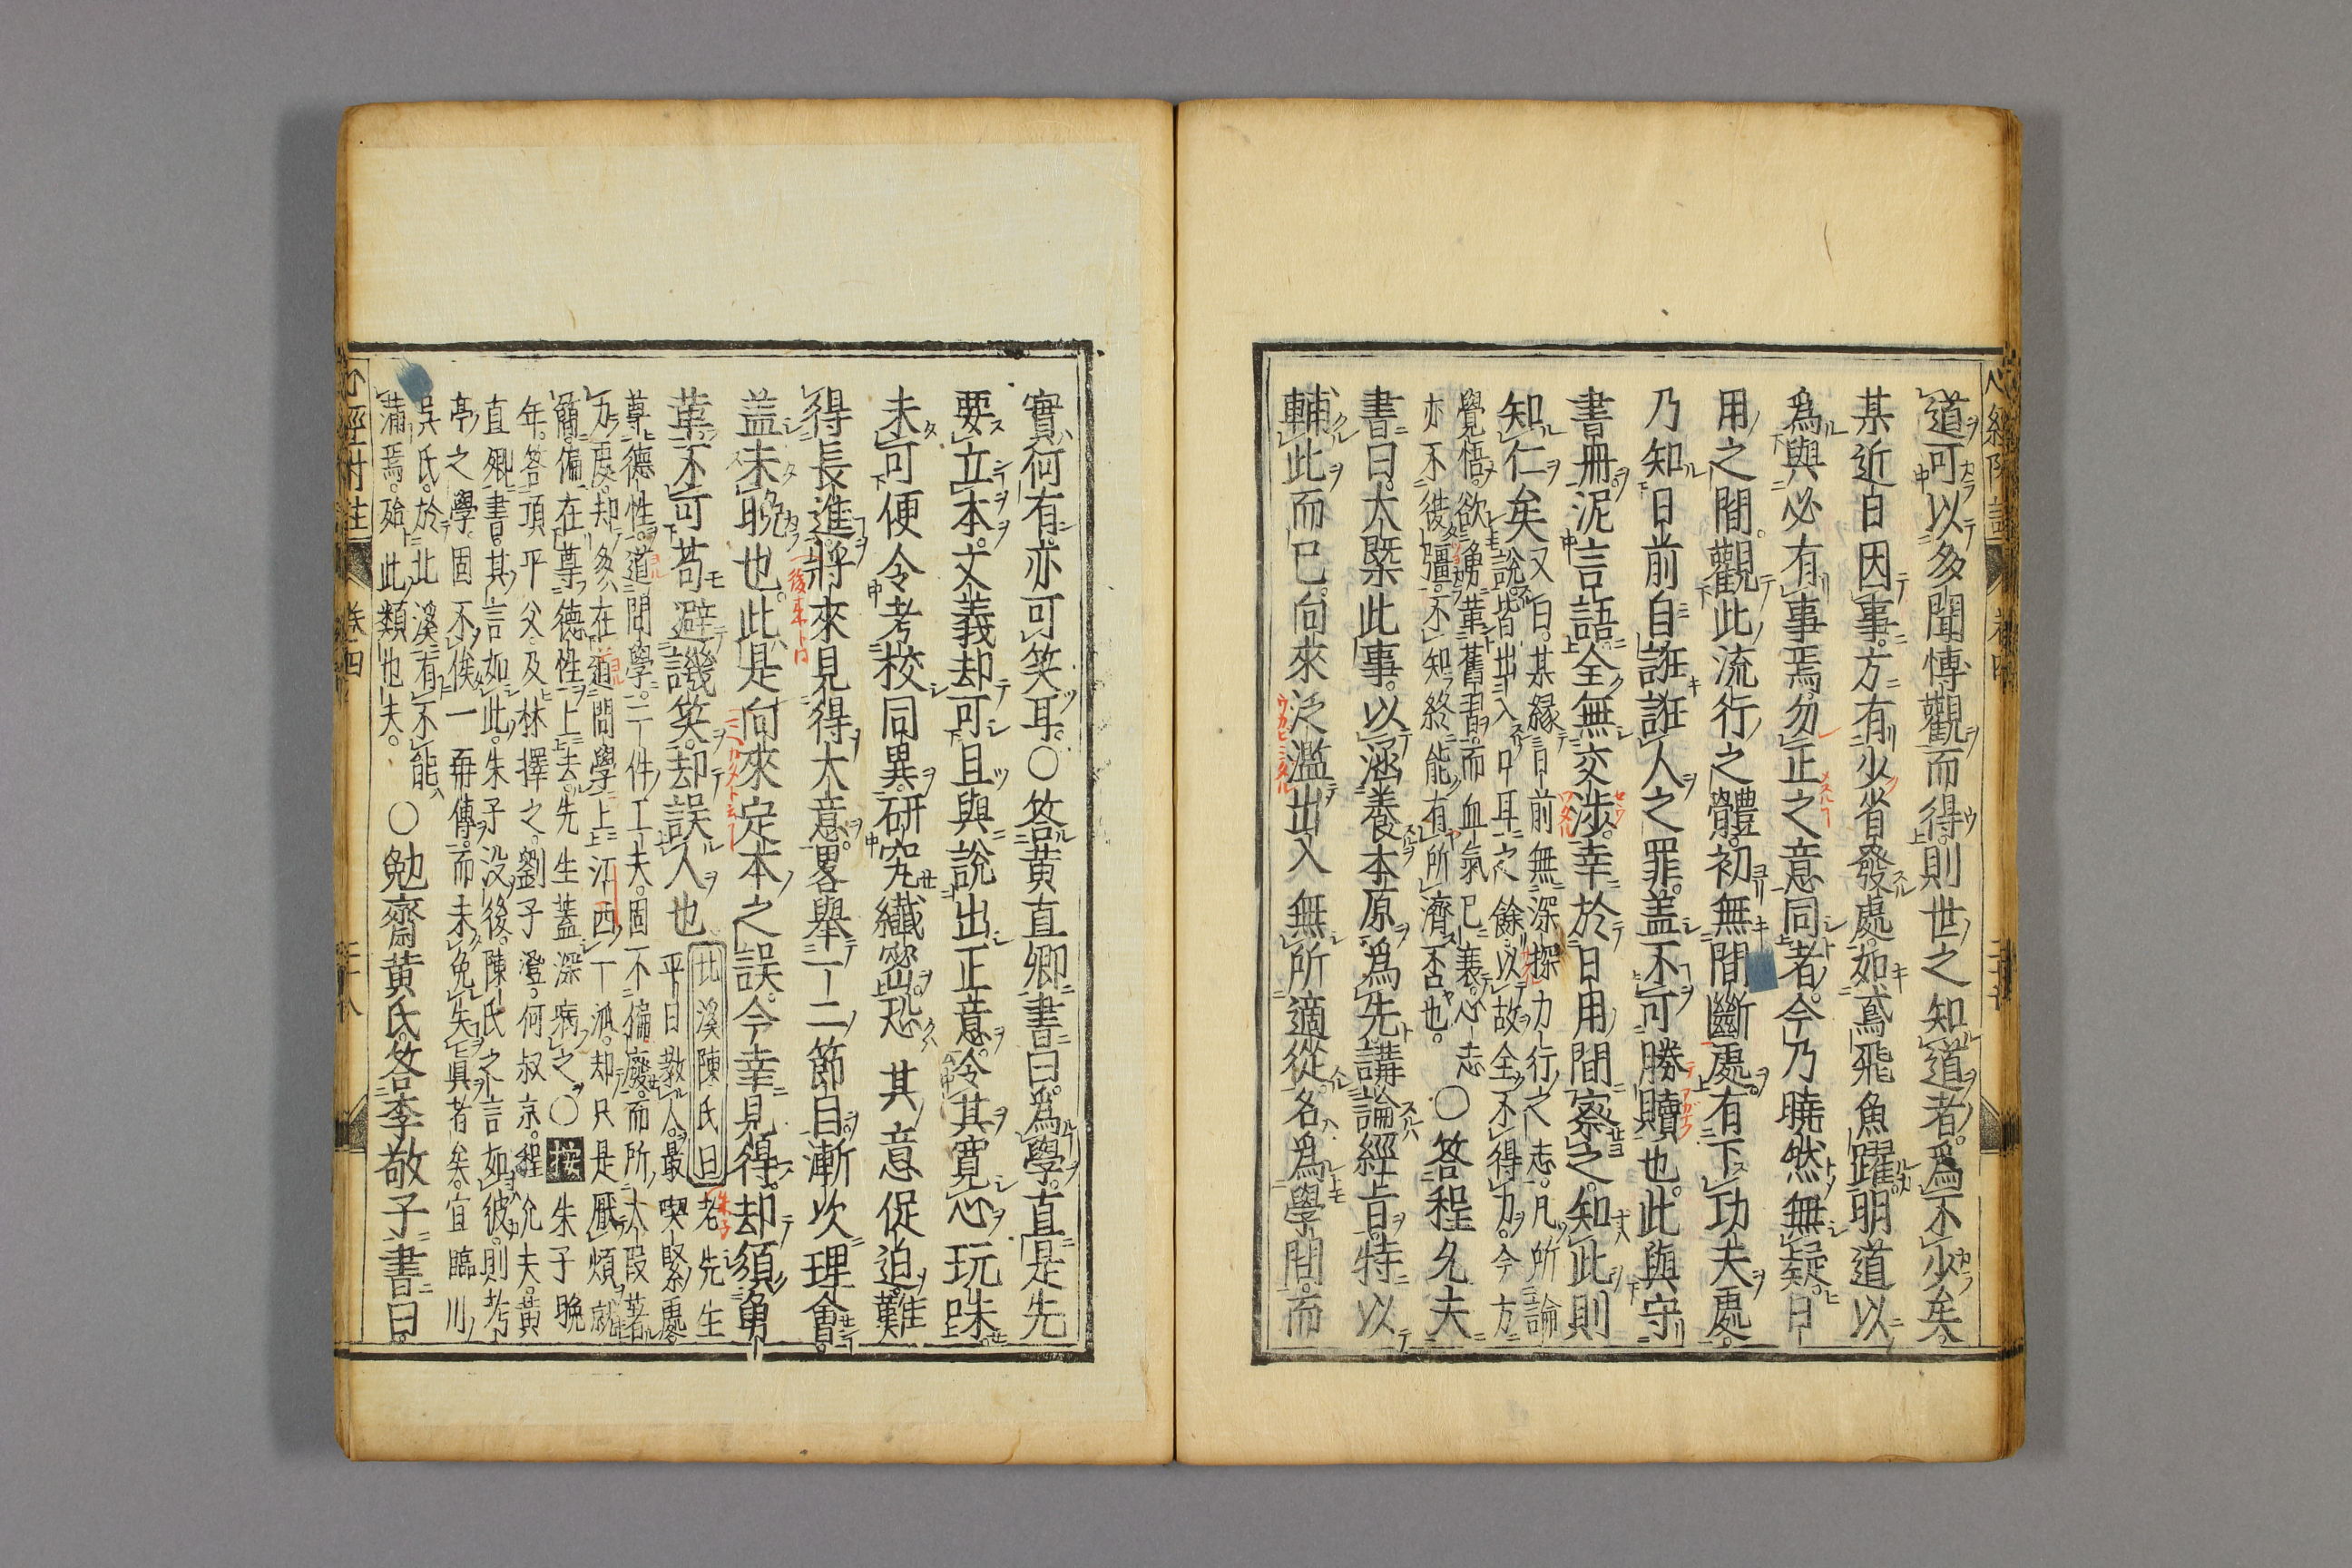 道可以多聞愽觀而得則世之知道者爲不少矣
某近日因事方有少省發處如鳶飛魚躍明道以
爲與必有事焉勿正之意同者今乃曉然無疑日
用之間觀此流行之體初無間斷處有下功夫處
乃知日前自誑誑人之罪蓋不可勝贖也此與守
書册泥言語全無交涉幸於日用間察之知此則
知仁矣
又曰某緣日前無深探力行之志凡所論
說皆出入口耳之餘以故全不得力今方
覺悟欲勇革舊習而血氣已衰心志
亦不復彊不知終能有所濟否也
○答程允夫
書曰大槩此事以涵養本原爲先講論經旨特以
輔此而已向來泛濫出入無所適從名爲學問而
實何有亦可笑耳○答黄直卿書曰爲學直是先
要立本文義却可且與說出正意令其寬心玩味
未可便令考校同異研究纖密恐其意促迫難
得長進將來見得大意畧舉一二節目漸次理會
蓋未晚也此是向來定本之誤今幸見得却須勇
革不可苟避譏笑却誤人也
北溪陳氏曰老先生
平日敎人最喫緊處
尊德性道問學二件工夫固不偏廢而所大段著
力處却多在道問學上江西一派却只是厭煩就
簡偏在尊德性上去先生蓋深病之○按朱子晚
年答項平父及林擇之劉子澄何叔京程允夫黄
直卿書其言如此朱子没後陳氏之言如彼則考
亭之學固不俟一再傳而未免失真者矣宜臨川
吳氏於北溪有不能
滿焉殆此類也夫
○勉齋黄氏答李敬子書曰
心經附註
卷四
二十八